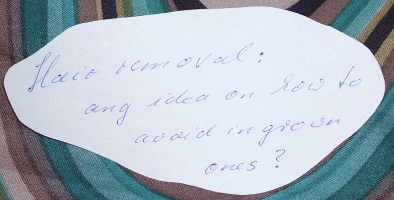 Hair removal:
any idea on how to
avoid ingrown
ones?